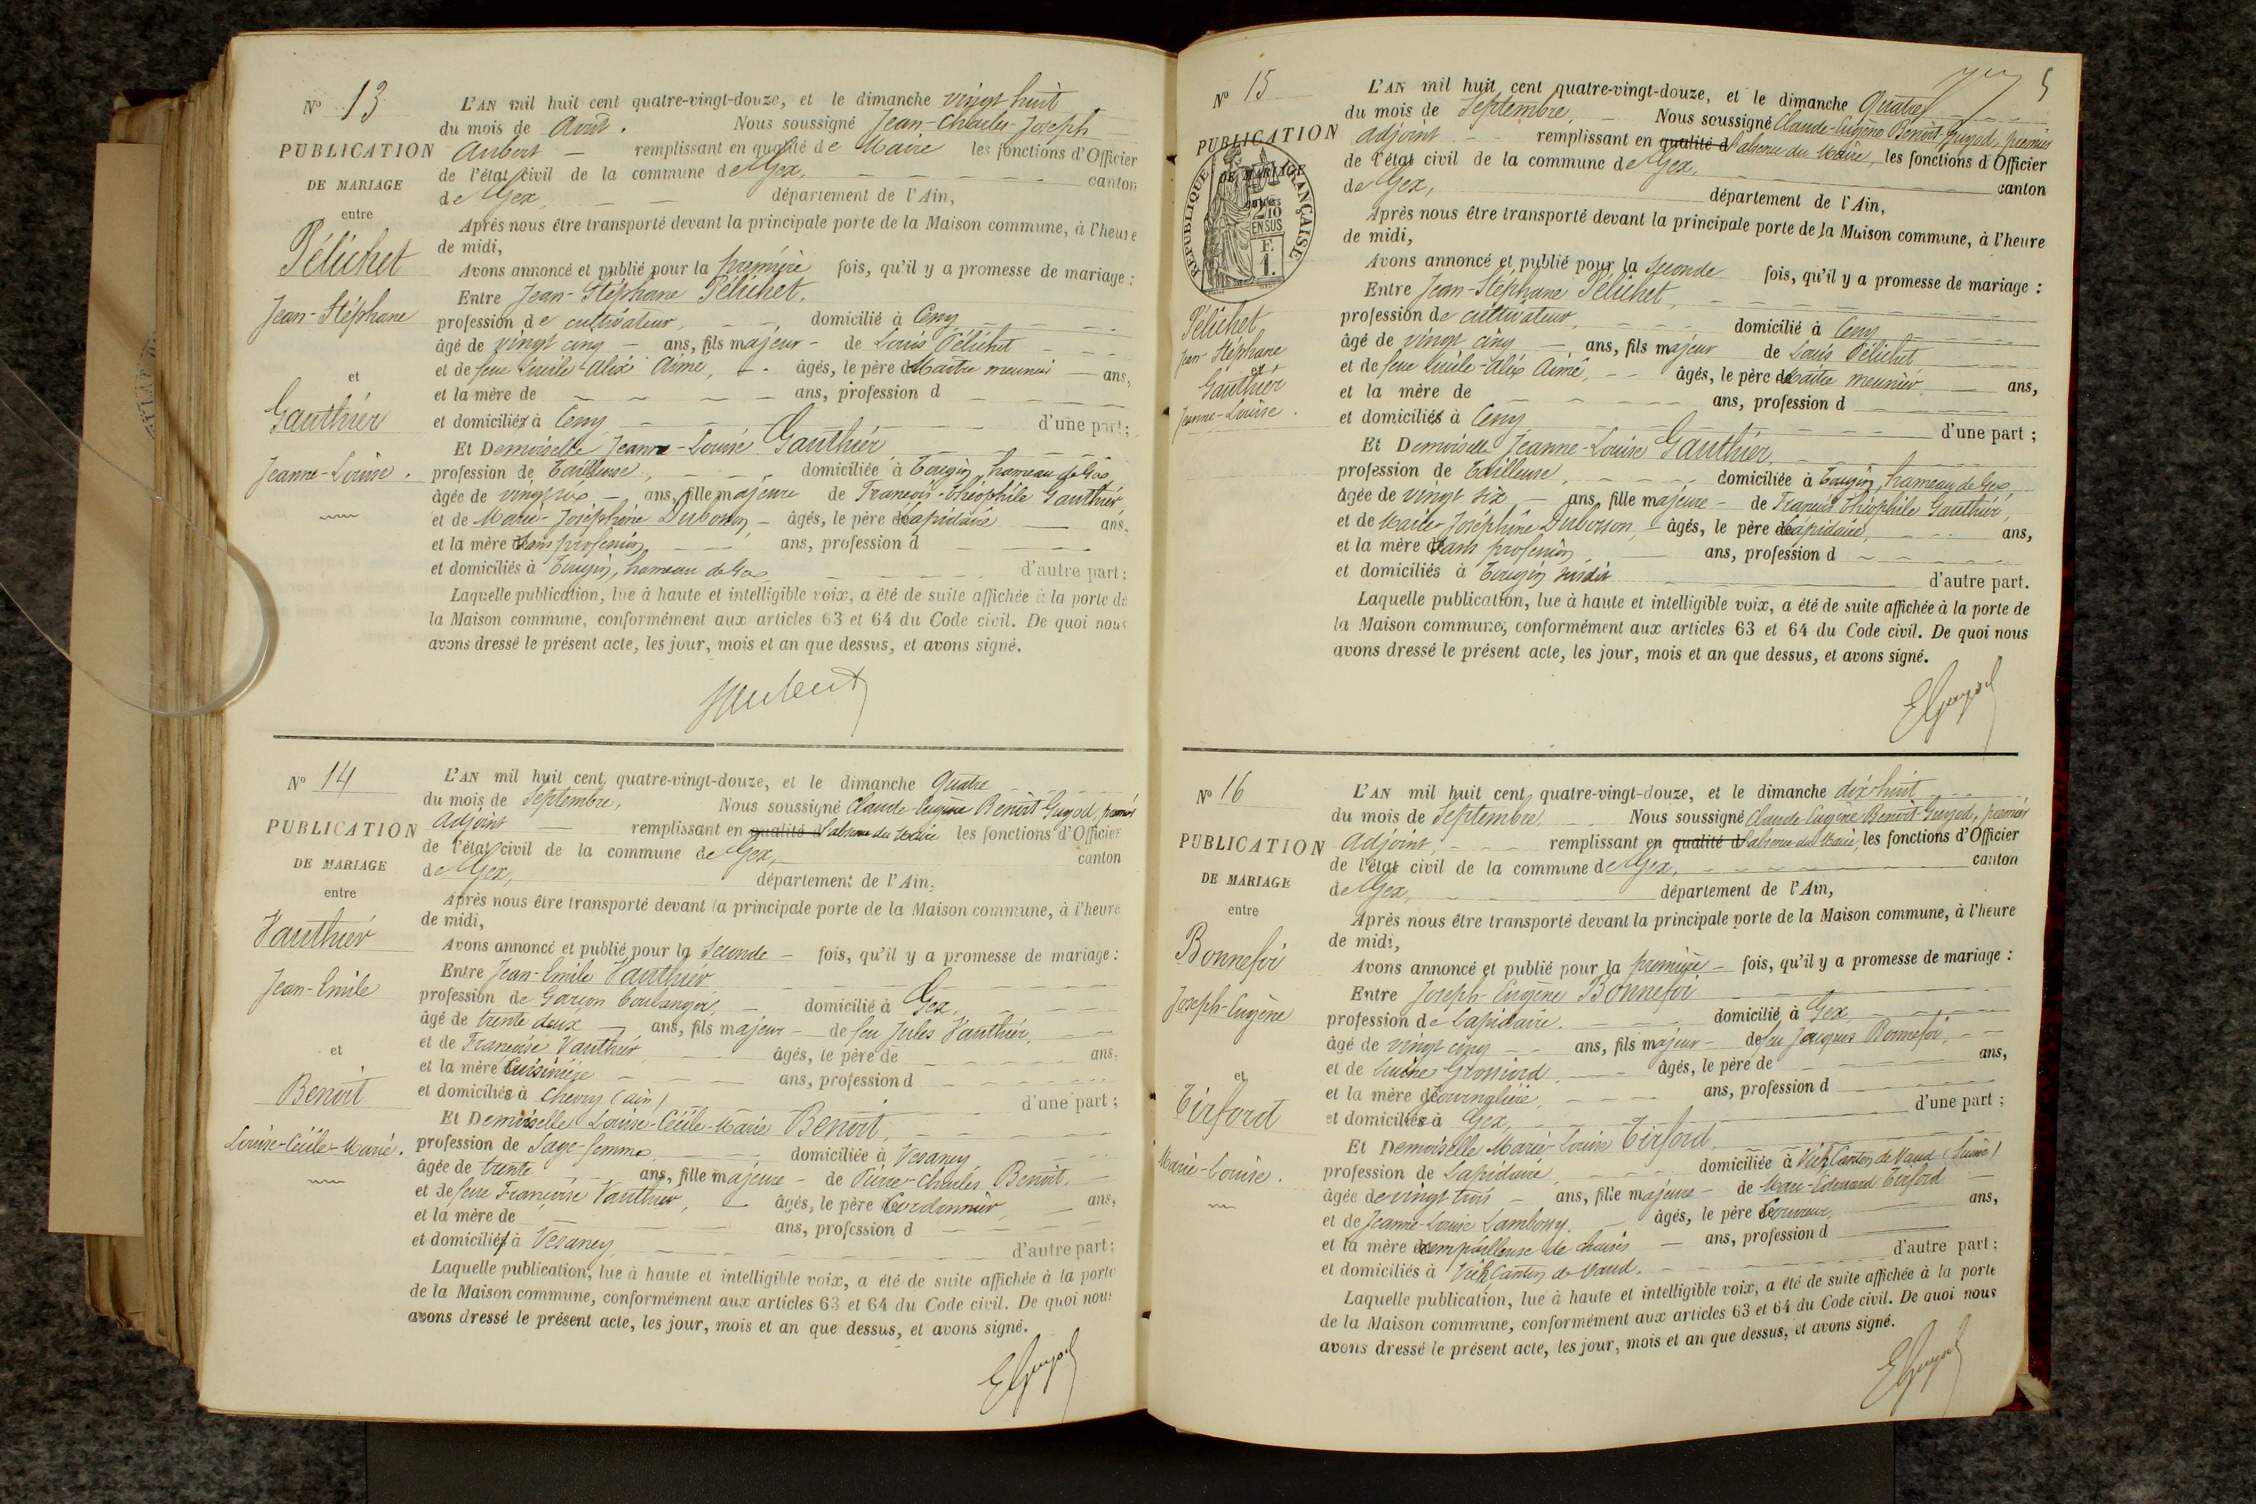 N° 13
PUBLICATION
DE MARIAGE
entre
Pélichet
Jean-Stéphane
et
Gauthier
Jeanne-Louise.
L'AN mil huit cent quatre-vingt-douze, et le dimanche vingt huit
du mois de Août. Nous soussigné Jean-Charles-Joseph
Aubert remplissant en qualité de Maire les fonctions d'Officier
de l'état civil de la commune de Gex, canton
de Gex, département de l'Ain,
Après nous être transporté devant la principale porte de la Maison commune, à l'heure
de midi,
Avons annoncé et publié pour la première fois, qu'il y a promesse de mariage :
Entre Jean-Stéphane Pélichet,
profession de cultivateur, domicilié à
âgé de vingt cinq ans, fils majeur de Louis Pélichet
et de feue Lucile-Alix Aimé, âgés, le père de Maître meunier ans,
et la mère de ans, profession d
et domiciliés à d'une part ;
Et Demoiselle Jeanne-Louise Gauthier
profession de Tailleuse, domiciliée à Tougin, hameau de Gex
âgée de vingt six ans, fille majeure de François-Théophile Gauthier,
et de Marie-Joséphine Dubosson, âgés, le père de Lapidaire ans,
et la mère de sans profession ans, profession d
et domiciliés à Tougin, hameau de Gex d'autre part ;
Laquelle publication, lue à haute et intelligible voix, a été de suite affichée à la porte de
la Maison commune, conformément aux articles 63 et 64 du Code civil. De quoi nous
avons dressé le présent acte, les jour, mois et an que dessus, et avons signé.
N° 14
PUBLICATION
DE MARIAGE
entre
Vauthier
Jean-Emile
et
Benoit
Louise-Cécile-Marie.
L'AN mil huit cent quatre-vingt-douze, et le dimanche quatre
du mois de Septembre, Nous soussigné Claude-Eugène Benoit-Guyod, premier
Adjoint remplissant en qualité d l'absence du Maire les fonctions d'Officier
de l'état civil de la commune de Gex, canton
de Gex, département de l'Ain,
Après nous être transporté devant la principale porte de la Maison commune, à l'heure
de midi,
Avons annoncé et publié pour la seconde fois, qu'il y a promesse de mariage :
Entre Jean-Emile Vauthier
profession de Garçon boulanger, domicilié à Gex,
âgé de trente deux ans, fils majeur de feu Jules Vauthier,
et de Françoise Vauthier, âgés, le père de ans,
et la mère Cuisinière ans, profession d
et domiciliés à Chevry (ain) d'une part ;
Et Demoiselle Louise-Cécile-Marie Benoit,
profession de Sage-femme, domiciliée à Vesancy
âgée de trente ans, fille majeure de Pierre-Charles Benoit,
et de feue Françoise Vauthier, âgés, le père Cordonnier ans,
et la mère de ans, profession d
et domiciliés à Vesancy d'autre part ;
Laquelle publication, lue à haute et intelligible voix, a été de suite affichée à la porte
de la Maison commune, conformément aux articles 63 et 64 du Code civil. De quoi nous
avons dressé le présent acte, les jour, mois et an que dessus, et avons signé.
EGuyod
5
N° 15
PUBLICATION
DE MARIAGE
RÉPUBLIQUE FRANÇAISE
2/10
EN SUS
F.
1.
Pélichet
Jean-Stéphane
et
Gauthier
Jeanne-Louise.
L'AN mil huit cent quatre-vingt-douze, et le dimanche Quatre
du mois de Septembre, Nous soussigné Claude-Eugène Benoit-Guyod, premier
adjoint remplissant en qualité d l'absence du Maire, les fonctions d'Officier
de l'état civil de la commune de Gex, canton
de Gex, département de l'Ain,
Après nous être transporté devant la principale porte de la Maison commune, à l'heure
de midi,
Avons annoncé et publié pour la seconde fois, qu'il y a promesse de mariage :
Entre Jean-Stéphane Pélichet,
profession de cultivateur, domicilié à
âgé de vingt cinq ans, fils majeur de Louis Pélichet
et de feue Lucile-Alix Aimé, âgés, le père de Maître meunier ans,
et la mère de ans, profession d
et domiciliés à d'une part ;
Et Demoiselle Jeanne-Louise Gauthier,
profession de Tailleuse, domiciliée à Tougin, hameau de Gex
âgée de vingt six ans, fille majeure de François Théophile Gauthier,
et de Marie-Joséphine Dubosson, âgés, le père de Lapidaire, ans,
et la mère de sans profession, ans, profession d
et domiciliés à Tougin d'autre part.
Laquelle publication, lue à haute et intelligible voix, a été de suite affichée à la porte de
la Maison commune, conformément aux articles 63 et 64 du Code civil. De quoi nous
avons dressé le présent acte, les jour, mois et an que dessus, et avons signé.
EGuyod
N° 16
PUBLICATION
DE MARIAGE
entre
Bonnefoi
Joseph-Eugène
et
Tirford
Marie-Louise.
L'AN mil huit cent quatre-vingt-douze, et le dimanche dix-huit
du mois de Septembre Nous soussigné Claude-Eugène Benoit-Guyod, premier
Adjoint, remplissant en qualité d l'absence du Maire, les fonctions d'Officier
de l'état civil de la commune de Gex, canton
de Gex, département de l'Ain,
Après nous être transporté devant la principale porte de la Maison commune, à l'heure
de midi,
Avons annoncé et publié pour la première fois, qu'il y a promesse de mariage :
Entre Joseph-Eugène Bonnefoi
profession de Lapidaire. domicilié à Gex
âgé de vingt cinq ans, fils majeur de feu Jacques Bonnefoi,
et de Grossiord âgés, le père de ans,
et la mère de ans, profession d
et domiciliés à Gex, d'une part ;
Et Demoiselle Marie-Louise Tirford
profession de Lapidaire domiciliée à Vich, Canton de Vaud (Suisse)
âgée de vingt trois ans, fille majeure de Marc-Edouard Tirford
et de Jeanne-Louise Lambossy. âgés, le père de Couvreur, ans,
et la mère de rempailleuse de chaises ans, profession d
et domiciliés à Vich, Canton de Vaud. d'autre part ;
Laquelle publication, lue à haute et intelligible voix, a été de suite affichée à la porte
de la Maison commune, conformément aux articles 63 et 64 du Code civil. De quoi nous
avons dressé le présent acte, les jour, mois et an que dessus, et avons signé.
EGuyod